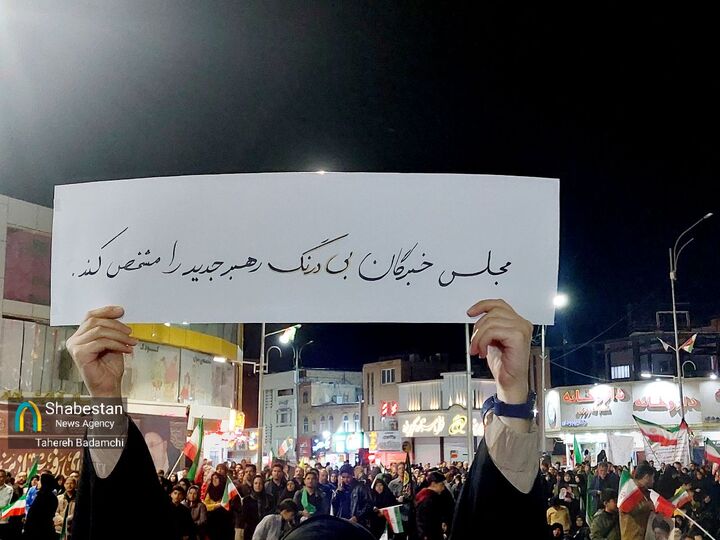 مجلس خبرگان بی درنگ رهبر جدید را مشخص کند.
Shabestan
News Agency
Tahereh Badamchi
داروخانه
داروخانه